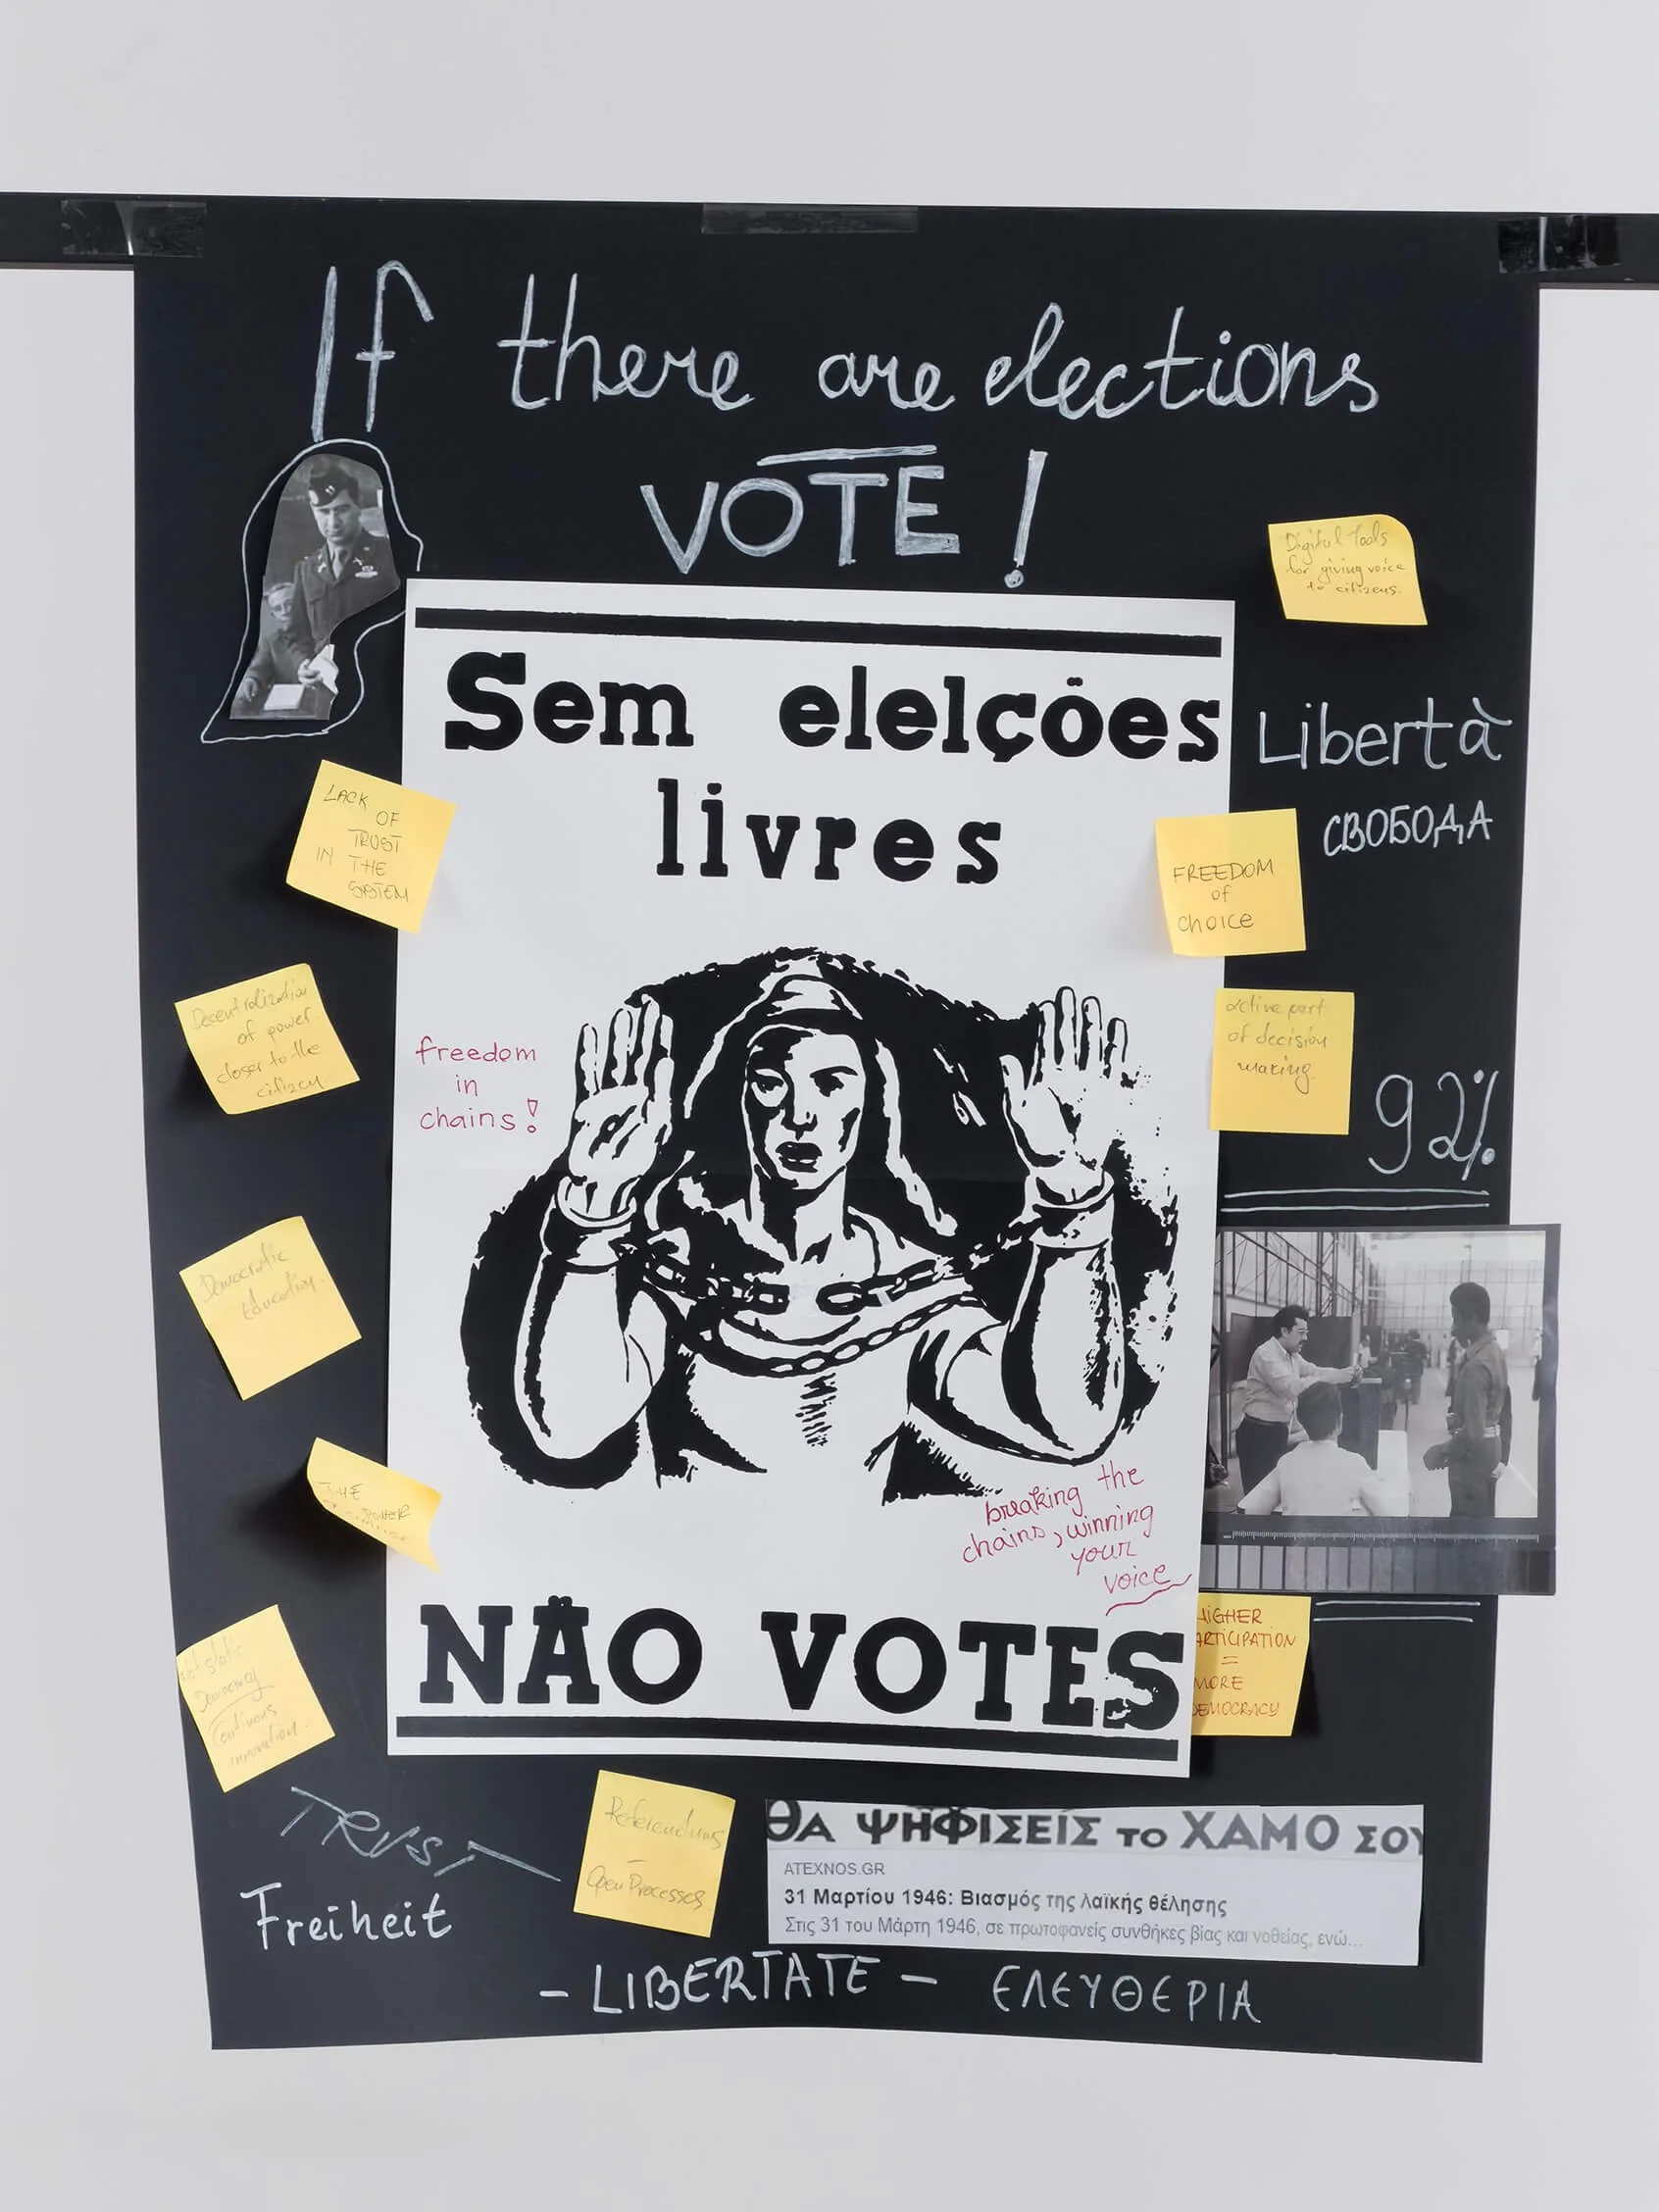 If there are elections
VOTE!
Digital tools
for giving voice
to citizens.
Sem eleIções
livres
Libertà
СВОБОДА
LACK
OF
TRUST
IN THE
SYSTEM
FREEDOM
of
choice
Decentralization
of power
closer to the
citizen
active part
of decision
making.
freedom
in
chains!
92%
Democratic
Education.
THE
POWER
breaking the
chains, winning
your
voice
NÃO VOTES
HIGHER
PARTICIPATION
=
MORE
DEMOCRACY
not static
Democracy
Continous
innovation.
TRUST
Freiheit
Referendums
-
Open Processes
ΘΑ ΨΗΦΙΣΕΙΣ το ΧΑΜΟ ΣΟΥ
ATEXNOS.GR
31 Μαρτίου 1946: Βιασμός της λαϊκής θέλησης
Στις 31 του Μάρτη 1946, σε πρωτοφανείς συνθήκες βίας και νοθείας, ενώ...
- LIBERTATE - ΕΛΕΥΘΕΡΙΑ